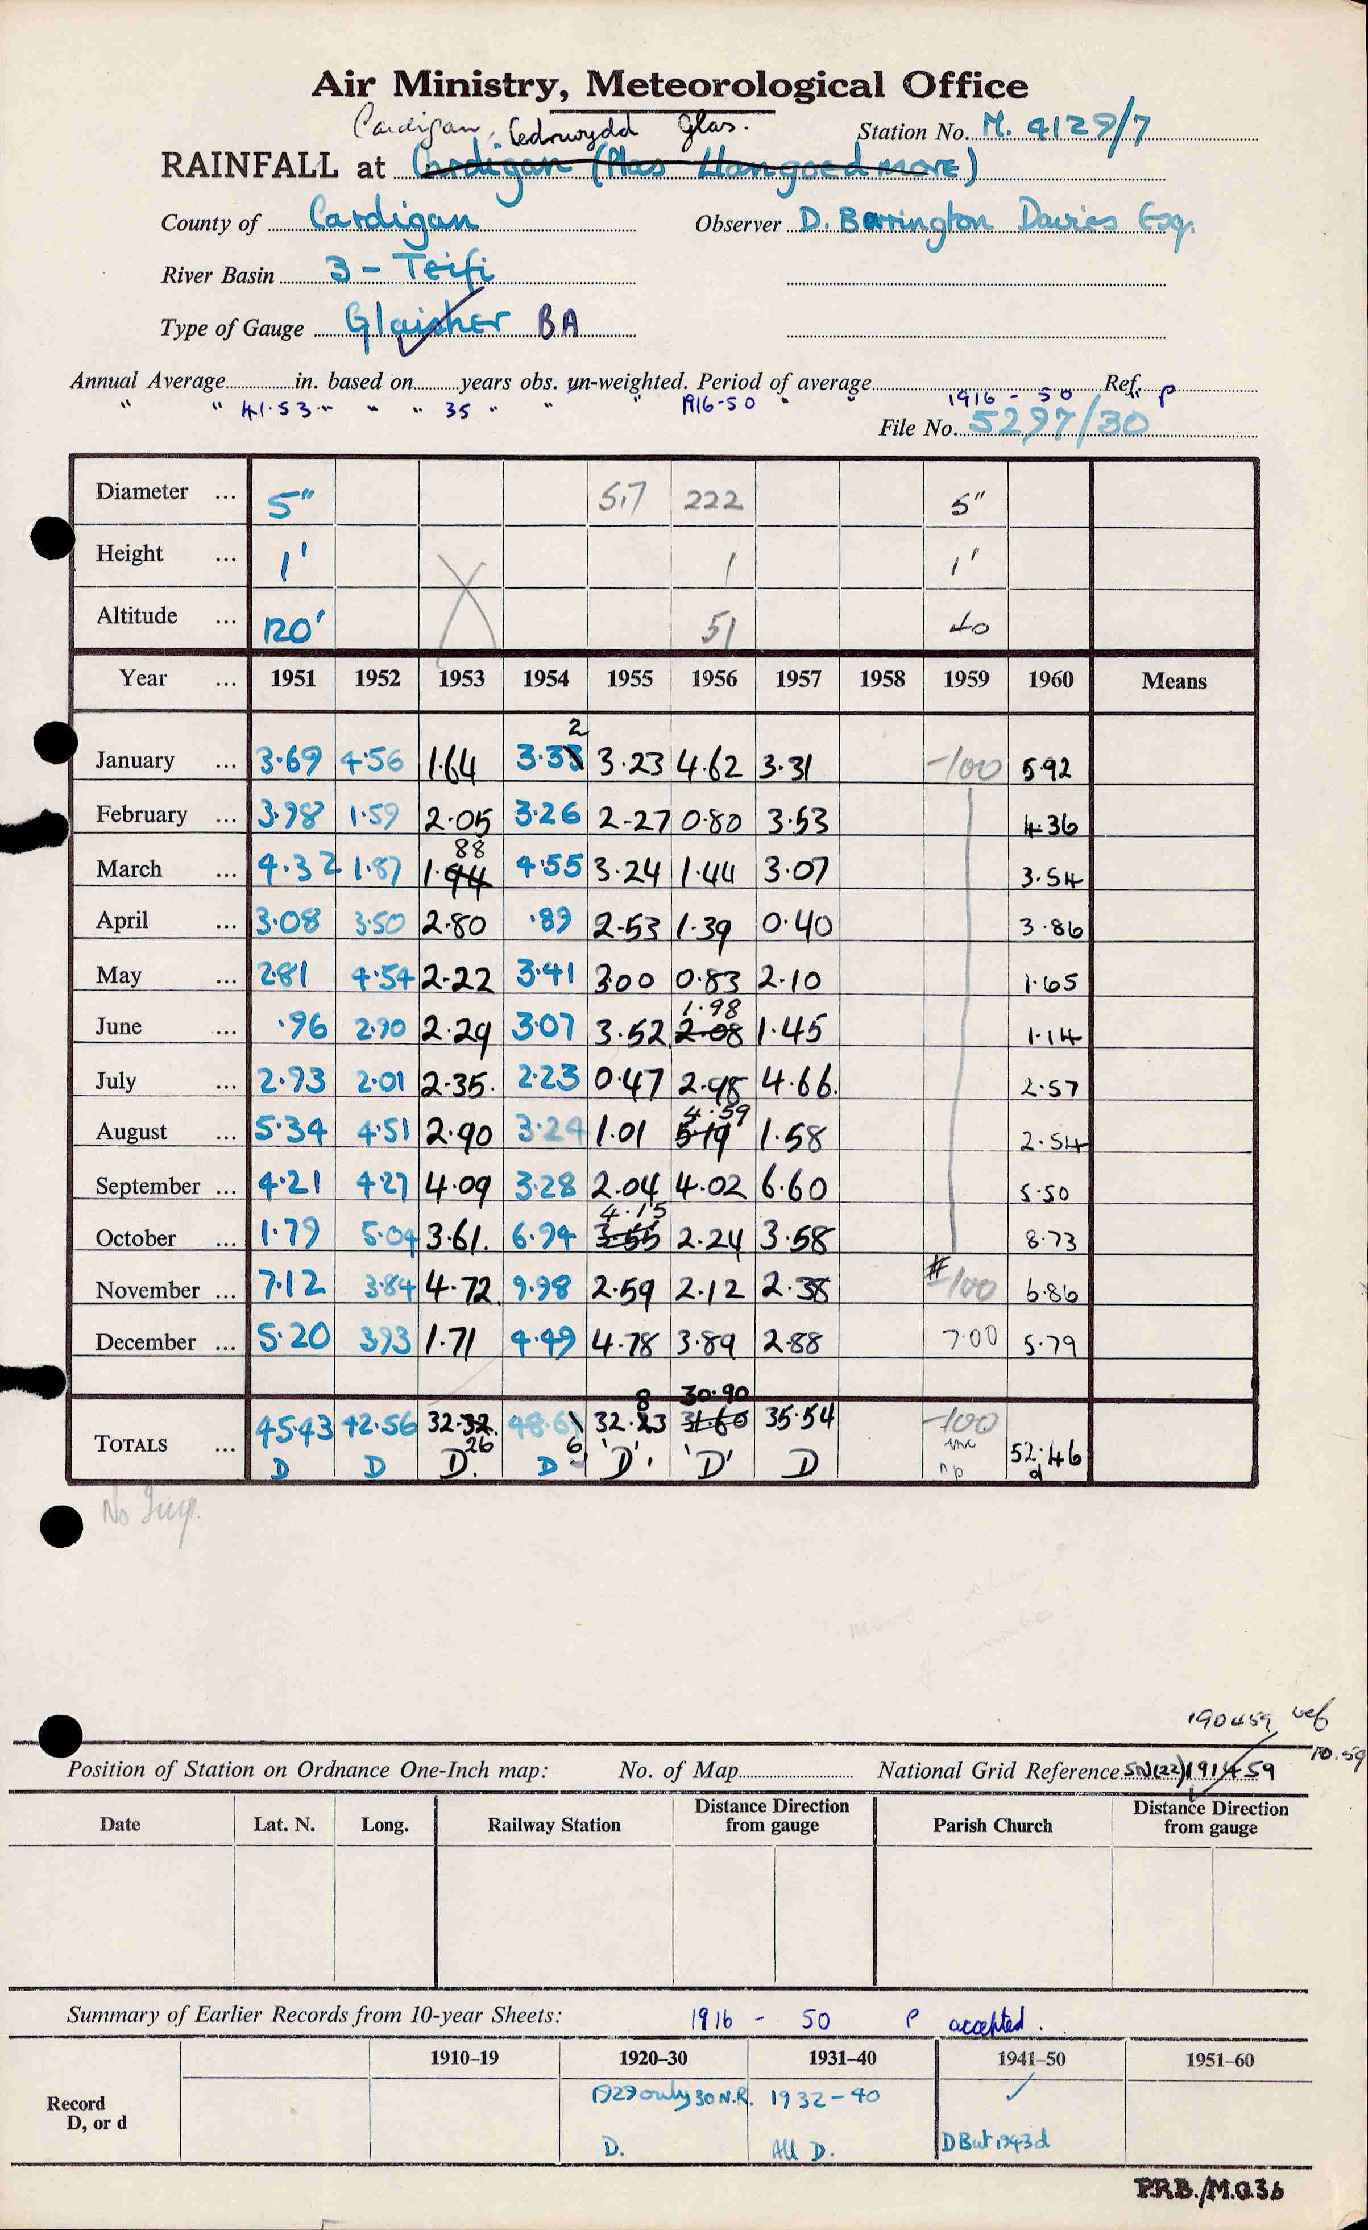 Air Ministry, Meteorological Office
Cardigan, Cedrwydd Glas.
Station No. M. 4129/7
RAINFALL at Cardigan (Plas Llangoedmore)
County of Cardigan Observer D. Barrington Davies Esq.
River Basin 3 - Teifi
Type of Gauge Glaisher BA
Annual Average in. based on years obs. un-weighted. Period of average Ref.
" " 41.53 " " " 35 " " " 1916-50 " " 1916 - 50 " P
File No. 5297/30
Diameter ... 5" 5.7 222 5"
Height ... 1' 1 1'
Altitude ... 120' 51 40
Year ... 1951 1952 1953 1954 1955 1956 1957 1958 1959 1960 Means
2
January ... 3.69 4.56 1.64 3.33 3.23 4.62 3.31 -100 5.92
February ... 3.98 1.59 2.05 3.26 2.27 0.80 3.53 4.36
88
March ... 4.32 1.87 1.94 4.55 3.24 1.44 3.07 3.54
April ... 3.08 3.50 2.80 .89 2.53 1.39 0.40 3.86
May ... 2.81 4.54 2.22 3.41 3.00 0.83 2.10 1.65
1.98
June ... .96 2.90 2.29 3.07 3.52 2.08 1.45 1.14
July ... 2.93 2.01 2.35. 2.23 0.47 2.98 4.66. 2.57
4.59
August ... 5.34 4.51 2.90 3.24 1.01 5.19 1.58 2.54
September ... 4.21 4.27 4.09 3.28 2.04 4.02 6.60 5.50
4.15
October ... 1.79 5.04 3.61. 6.94 3.55 2.24 3.58 8.73
November ... 7.12 3.84 4.72 9.98 2.59 2.12 2.38 # -100 6.86
December ... 5.20 3.93 1.71 4.49 4.78 3.89 2.88 7.00 5.79
8 30.90
TOTALS ... 45.43 42.56 32.32. 48.6 32.23 31.60 35.54 -100 52.46
26 6
D D D. D 'D'. 'D' D np d
No
190459
10.59
Position of Station on Ordnance One-Inch map: No. of Map National Grid Reference SN(22)191459
Date Lat. N. Long. Railway Station Distance Direction from gauge Parish Church Distance Direction from gauge
Summary of Earlier Records from 10-year Sheets: 1916 - 50 P accepted.
1910-19 1920-30 1931-40 1941-50 1951-60
Record
D, or d
1929 only 30 N.R. 1932-40 ✓
D. All D. D But 1943 d
P.R.B./M.O.36